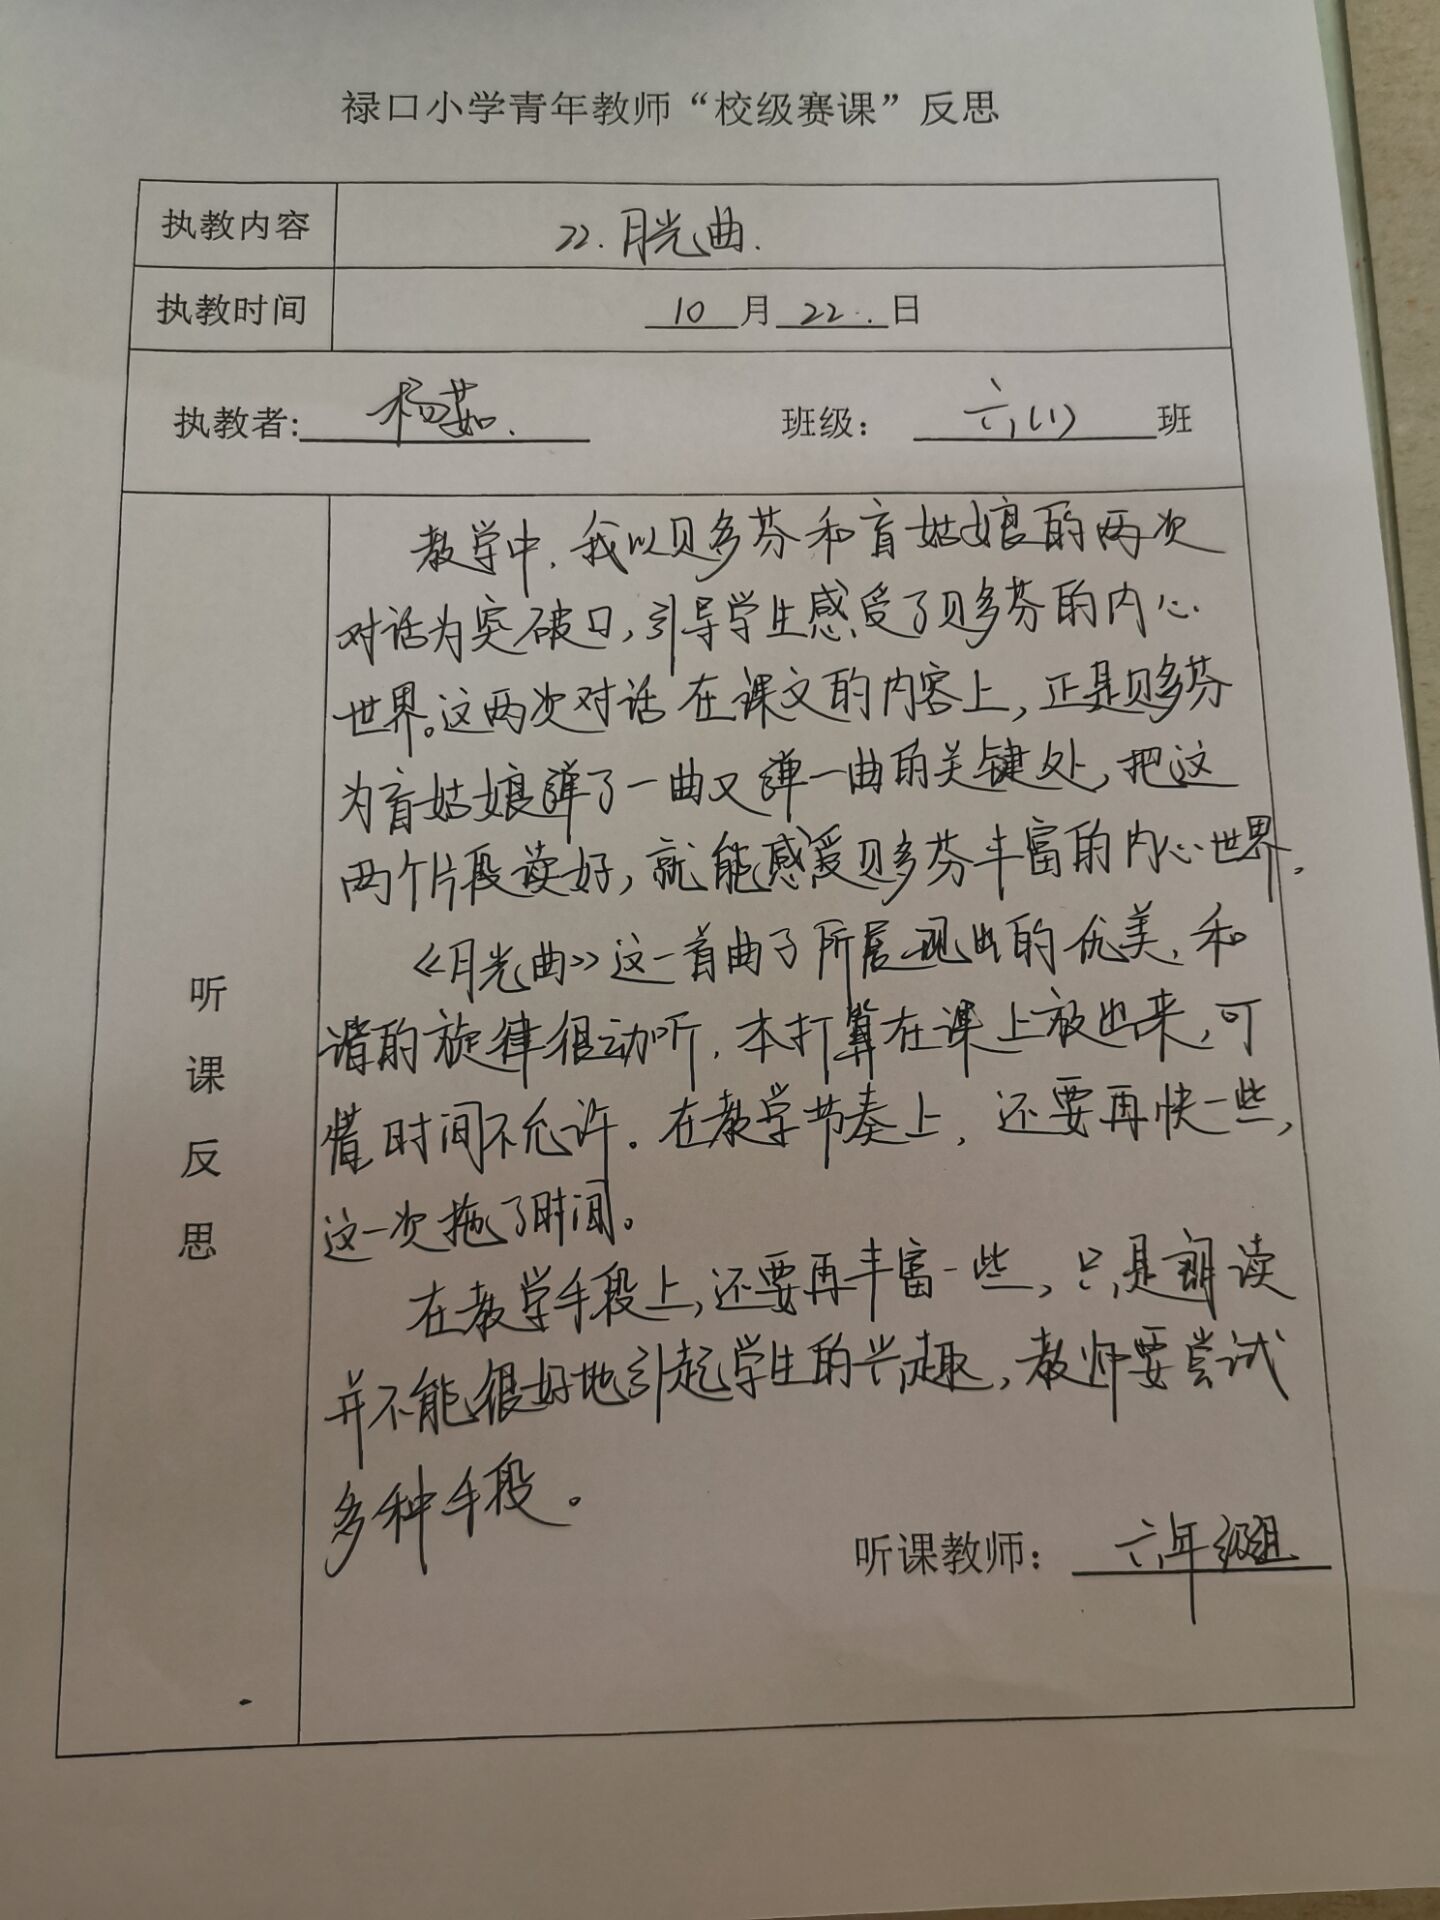 禄口小学青年教师“校级赛课”反思
执教内容 22.月光曲.
执教时间 10月22.日
执教者:杨茹. 班级：六(1)班
听课反思
教学中,我以贝多芬和盲姑娘的两次
对话为突破口,引导学生感受了贝多芬的内心
世界。这两次对话在课文的内容上,正是贝多芬
为盲姑娘弹了一曲又弹一曲的关键处,把这
两个片段读好,就能感受贝多芬丰富的内心世界.
《月光曲》这一首曲子所展现出的优美、和
谐的旋律很动听,本打算在课上放出来,可
惜时间不允许。在教学节奏上,还要再快一些,
这一次拖了时间。
在教学手段上,还要再丰富一些,只是朗读
并不能很好地引起学生的兴趣,教师要尝试
多种手段。
听课教师：六年级组